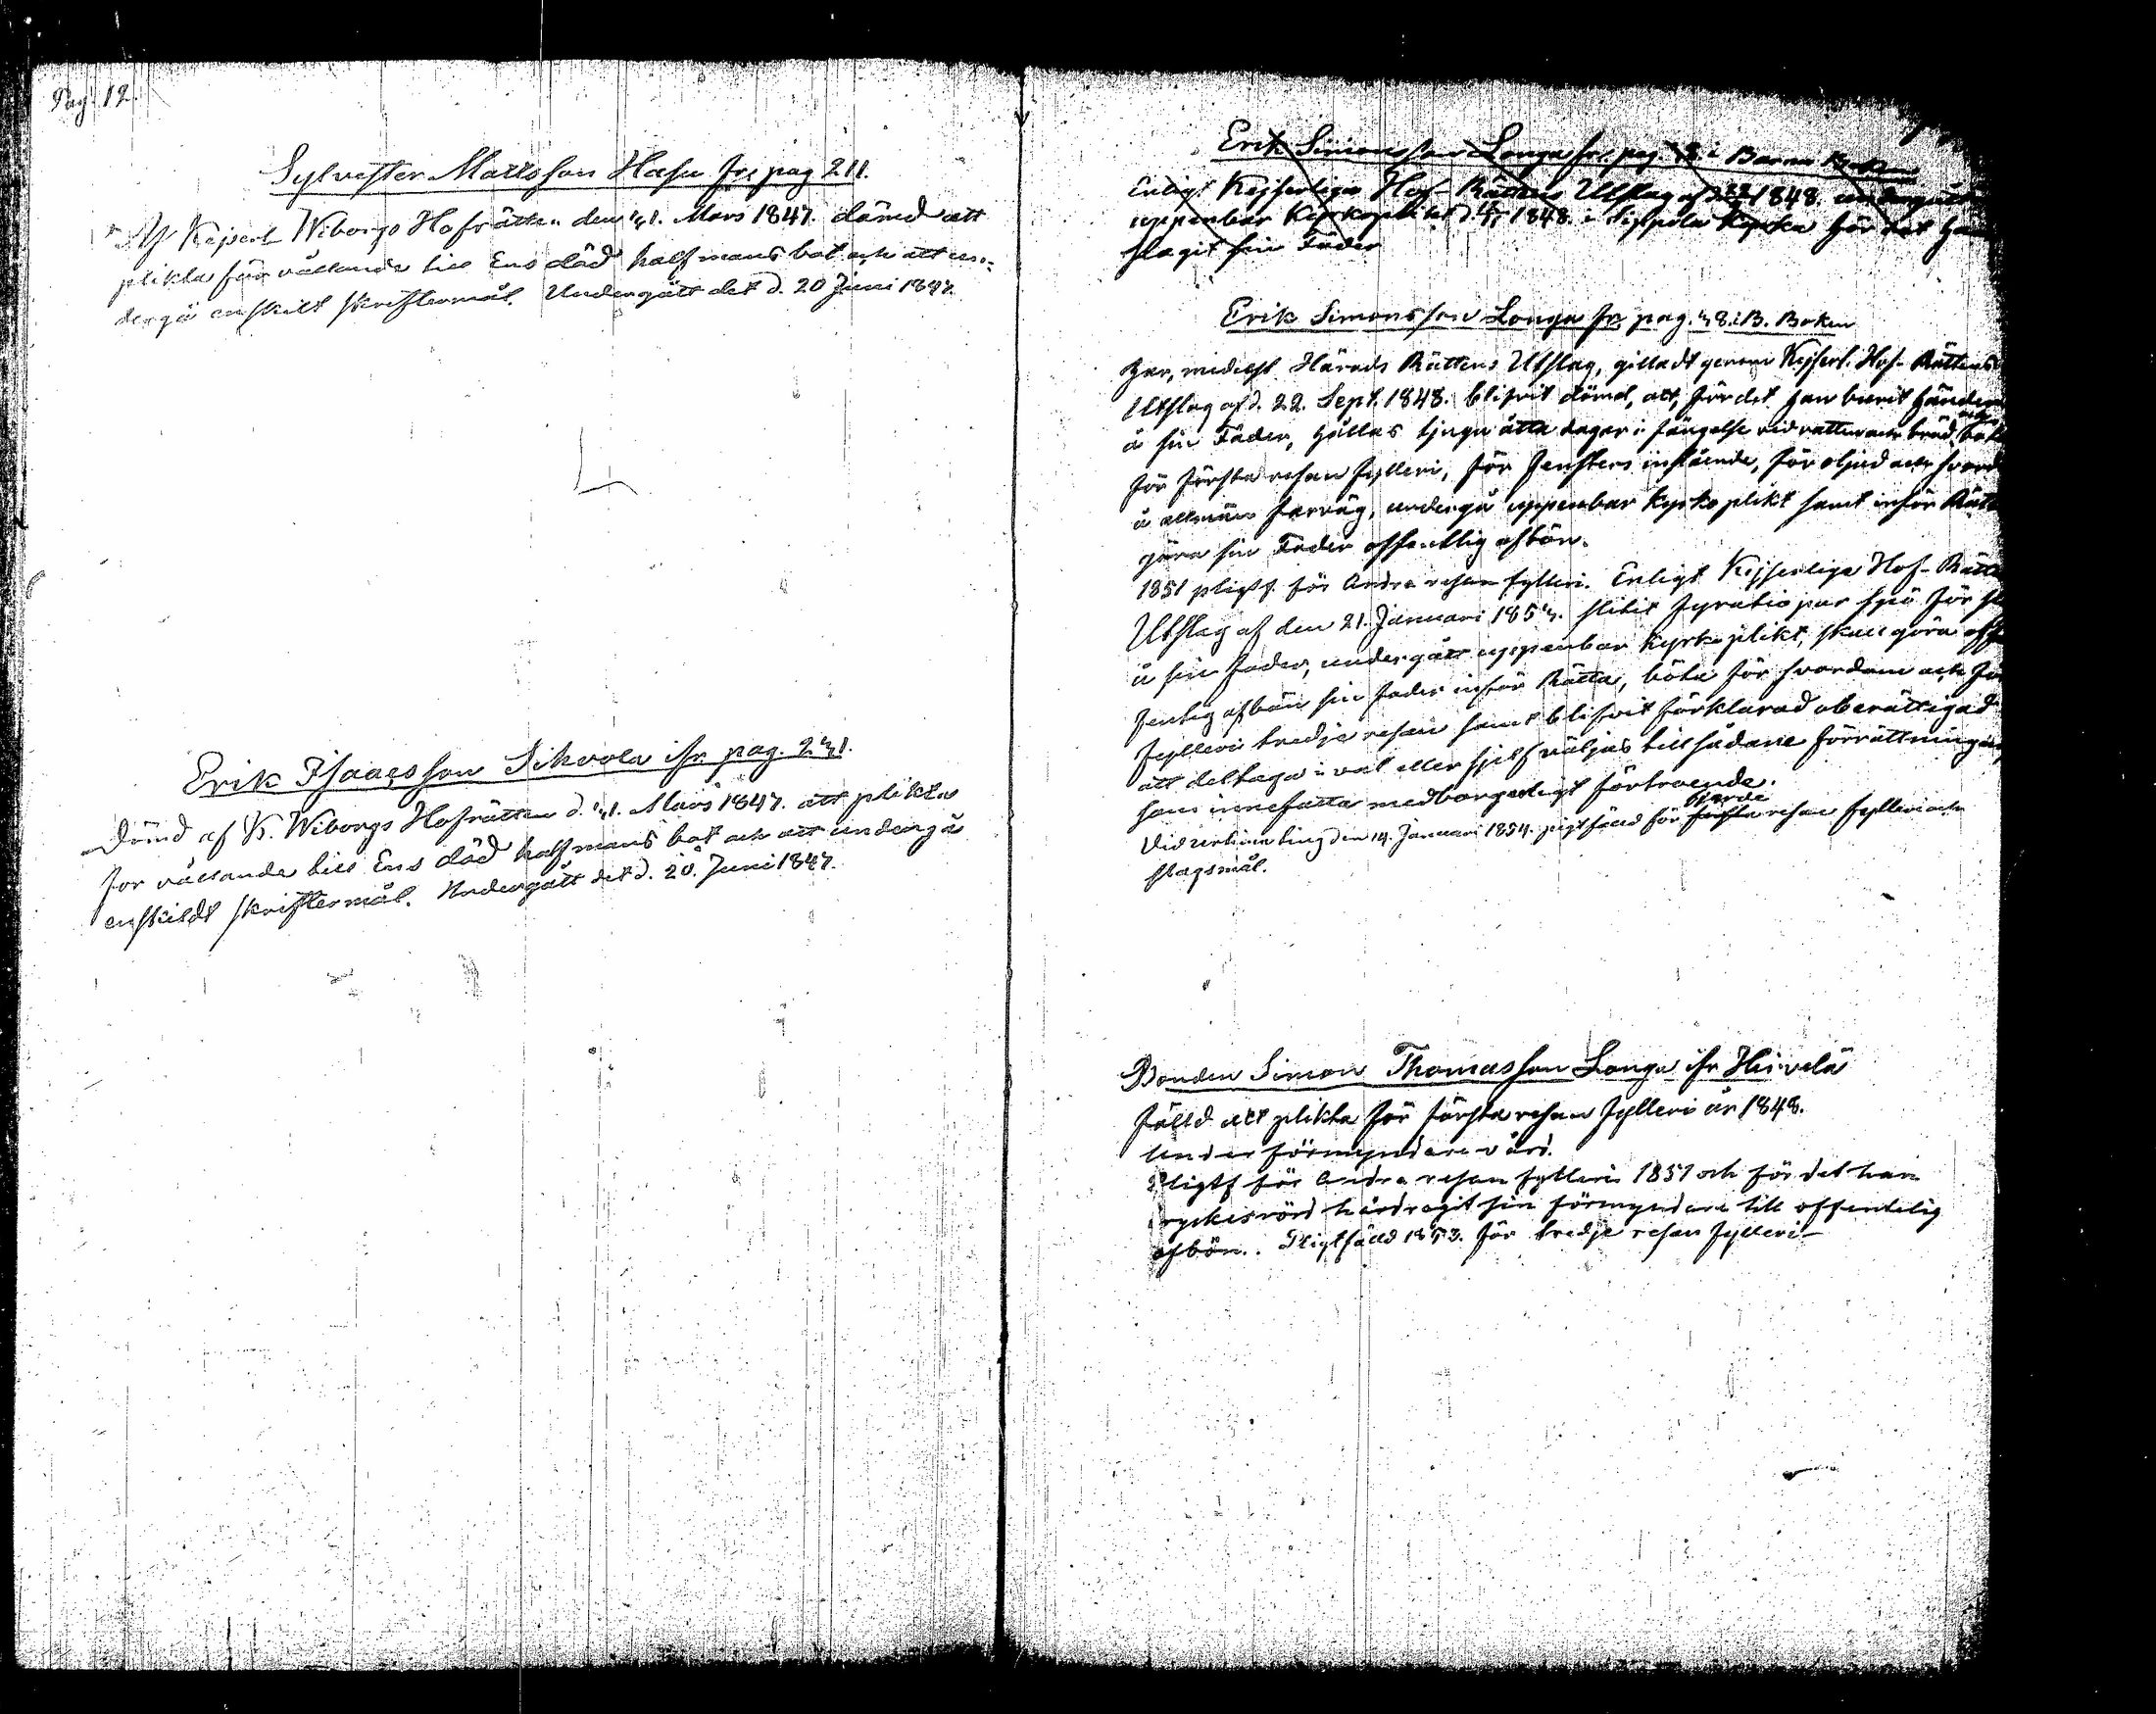 Pag. 12.
Sylvester Mattsson Hasu fr. pag 211.
Af Kejserl. Wiborgs Hofrätten den 1. Mars 1847. dömd att
plikta för vållande till Ens död half mans bot och att un-
dergå enskilt skriftermål. Undergått det d. 20 Juni 1847.
Erik Isaacsson Sihvola ifr. pag. 241.
Dömd af K. Wiborgs Hofrätten d. 1. Mars 1847. att plikta
för vållande till Ens död half mans bot och att undergå
enskildt skriftermål. Undergått det d. 20. Juni 1847.
Erik Simonsson Longa fr. pag. 8. i Barna Boken
Enligt Kejserliga Hof-Rättens Utslag af d. 22 1848. undergått
uppenbar Kyrkoplikt d. 1848. i Sippola Kyrka för det han
slagit sin Fader
Erik Simonsson Longa fr. pag. 48. i B. Boken
Har, medelst Härads Rättens Utslag, gilladt genom Kejserl. Hof-Rättens
Utslag af d. 22. Sept. 1848. blifvit dömd, att, för det han burit händer
å sin Fader, hållas tjugu åtta dagar i fängelse vid vatten och bröd, böta
för första resan fylleri, för fensters inslående, för oljud och svordom
å allmän farväg, undergå uppenbar kyrkoplikt samt inför Rätta
göra sin Fader offentlig afbön.
1851 pligtf. för Andra resan fylleri. Enligt Kejserliga Hof-Rättens
Utslag af den 21. Januari 1854. slitit fyratio par spö för
å sin fader, undergått uppenbar kyrkoplikt, skall göra off
fentlig afbön sin fader inför Rätta, böta för svordom och för
fylleri tredje resan samt blifvit förklarad oberättigad
att deltaga i val eller sjelf väljas till sådane förrättningar,
som innefatta medborgerligt förtroende.
Vid urtima ting den 14. Januari 1854. pligtfälld för första fjerde resan fylleri och
slagsmål.
Bonden Simon Thomasson Longa ifr. Heivelä
fälld att plikta för första resan fylleri år 1848.
Under förmyndare vård.
Pligtf. för Andra resan fylleri 1851 och för det han
ryckt hårdragit sin förmyndare till offentelig
afbön. Pligtfälld 1853. för tredje resan fylleri